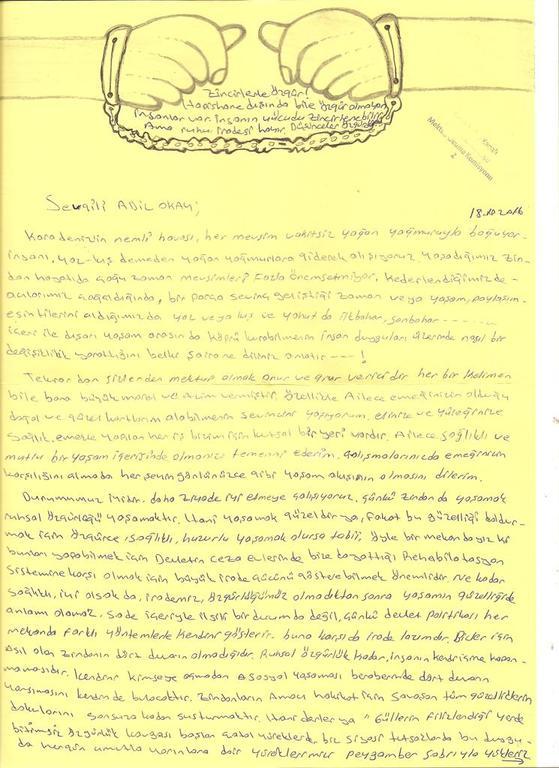 Zincirlerle Özgür!
Hapishane dışında bile özgür olmayan
insanlar var. İnsanın vücudu zincirlenebilir
Ama ruhu, iradesi hayır. Düşünceler özgürdür
Mektup Okuma Komisyonu
2
Sevgili ADİL OKAY;
18.10.2016
Karadenizin nemli havası, her mevsim vakitsiz yağan yağmuruyla boğuyor
insanı, yaz-kış demeden yağan yağmurlara giderek alışıyoruz yaşadığımız zin-
dan hayatıda çoğu zaman mevsimleri fazla önemsetmiyor. Kederlendiğimizde-
acılarımız çoğaldığında, bir parça sevinç geliştiği zaman veya yaşam, paylaşım-
esintilerini aldığımızda yaz veya kış ve yahut da ilkbahar, sonbahar
içeri ile dışarı yaşam arasında köprü kurabilmenin insan duyguları üzerinde nasıl bir
değişiklik yarattığını belki şairane dilimiz anlatır ---!
Tekrardan sizlerden mektup almak onur ve gurur vericidir her bir kelimen
bile bana büyük moral ve azim vermiştir. Özellikle Ailece emeğinizin olduğu
doğal ve güzel kartlarını alabilmenin sevincini yaşıyorum. elinize ve yüreğinize
sağlık. emekle yapılan her iş bizim için kutsal bir yeri vardır. Ailece sağlıklı ve
mutlu bir yaşam içerisinde olmanızı temenni ederim. Çalışmalarınızda emeğinizin
karşılığını almada her şeyin gönlünüzce gibi yaşam akışının olmasını dilerim.
Durumumuz iyidir. daha ziyade iyi etmeye çalışıyoruz. Çünkü zindanda yaşamak
ruhsal özgürlüğü yaşamaktır. Hani yaşamak güzeldir ya, fakat bu güzelliği doldur-
mak için özgürce, sağlıklı, huzurlu yaşamak olursa tabii, öyle bir mekandayız ki
bunları yapabilmek için Devletin ceza evlerinde bize dayattığı Rehabilitasyon
sistemine karşı olmak için büyük irade gücünü göstere bilmek önemlidir. Ne kadar
sağlıklı, iyi olsak da, irademiz, özgürlüğümüz olmadıktan sonra yaşamın güzelliğide
anlamı olamaz. Sade içeriyle ilgili bir durum da değil, çünkü devlet politikası her
mekanda farklı yöntemlerle kendini gösterir. buna karşıda irade lazımdır. Bizler için
asıl olan zindanın dört duvarı olmadığıdır. Ruhsal özgürlük kadar, insanın kendi içine kapan-
mamasıdır. Kendini kimseye açmadan Asosyal yaşaması beraberinde dört duvarın
yansımasını kendinde bulacaktır. Zindanların Amacı hakikat için Savaşan tüm güzelliklerin
dokularını sonsuza kadar susturmaktır. Hani derler ya "Güllerin filizlendiği yerde
bizimsiz özgürlük kavgası başlar yürekler. biz siyasi tutsaklarda bu duygu-
da hergün umutla yarınlara dair yüreklerimizi peygamber sabrıyla yükleriz